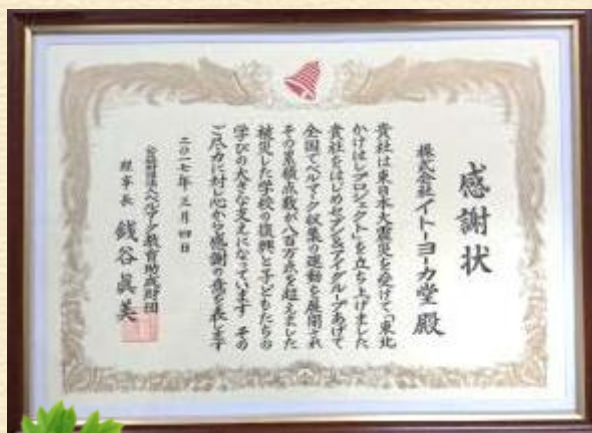 感謝状
株式会社イトーヨーカ堂 殿
貴社は東日本大震災を受けて「東北
かけはしプロジェクト」を立ち上げました
貴社をはじめセブン&アイグループあげて
全国でベルマーク収集の運動を展開され
その累積点数が八百万点を超えました
被災した学校の復興と子どもたちの
学びの大きな支えになっています その
ご尽力に対し心から感謝の意を表します
二〇一七年 三月 四日
公益財団法人ベルマーク教育助成財団
理事長 銭谷眞美